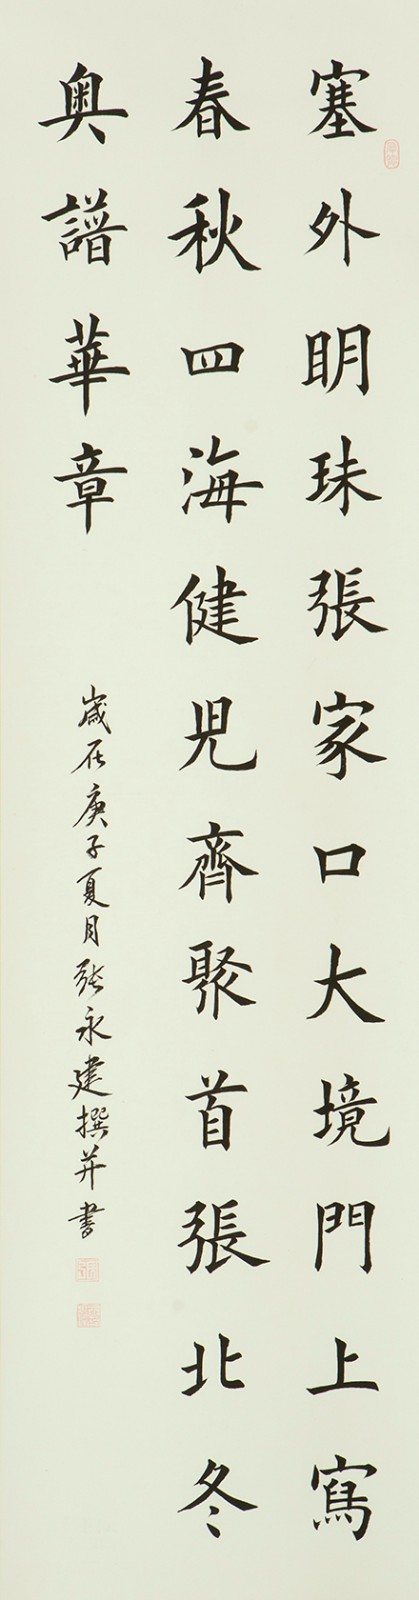 塞外明珠張家口大境門上寫
春秋四海健児齊聚首張北冬
奥譜華章
歲在庚子夏月張永建撰并書